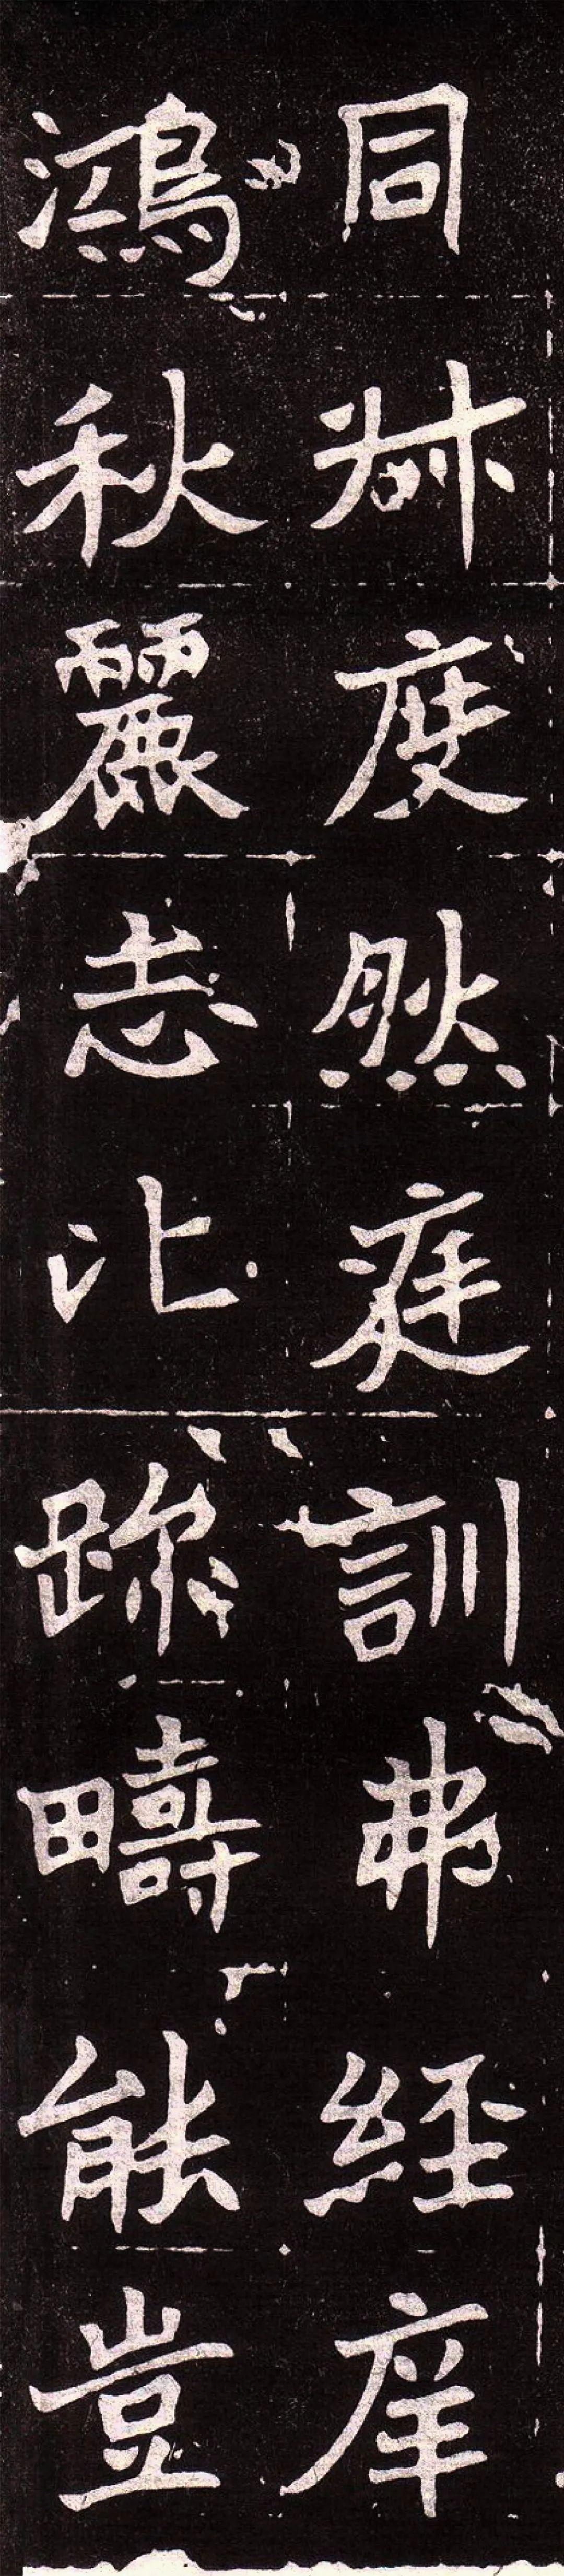 同叔度然庭訓弗經庠
鴻秋麗志比跡疇能豈